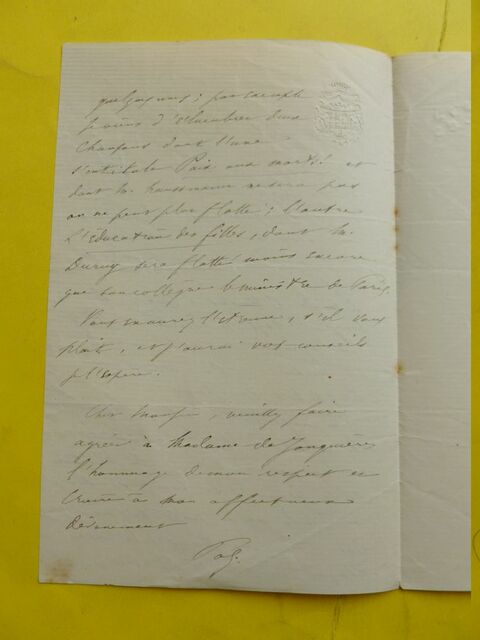 quelques uns ; par exemple
je viens d'ébaucher deux
chansons dont l'une
s'intitule Paix aux morts ! et
dont M. Haussmann ne sera pas
on ne peut plus flatté ; l'autre
L'éducation des filles, dont M.
Duruy sera flatté moins encore
que son collègue le ministre de Paris.
Vous en aurez l'étrenne, s'il vous
plait, et j'aurai vos conseils
je l'espère.
Cher Monsieur, veuillez faire
agréer à Madame de Jonquières
l'hommage de mon respect et
croire à mon affectueux
dévouement